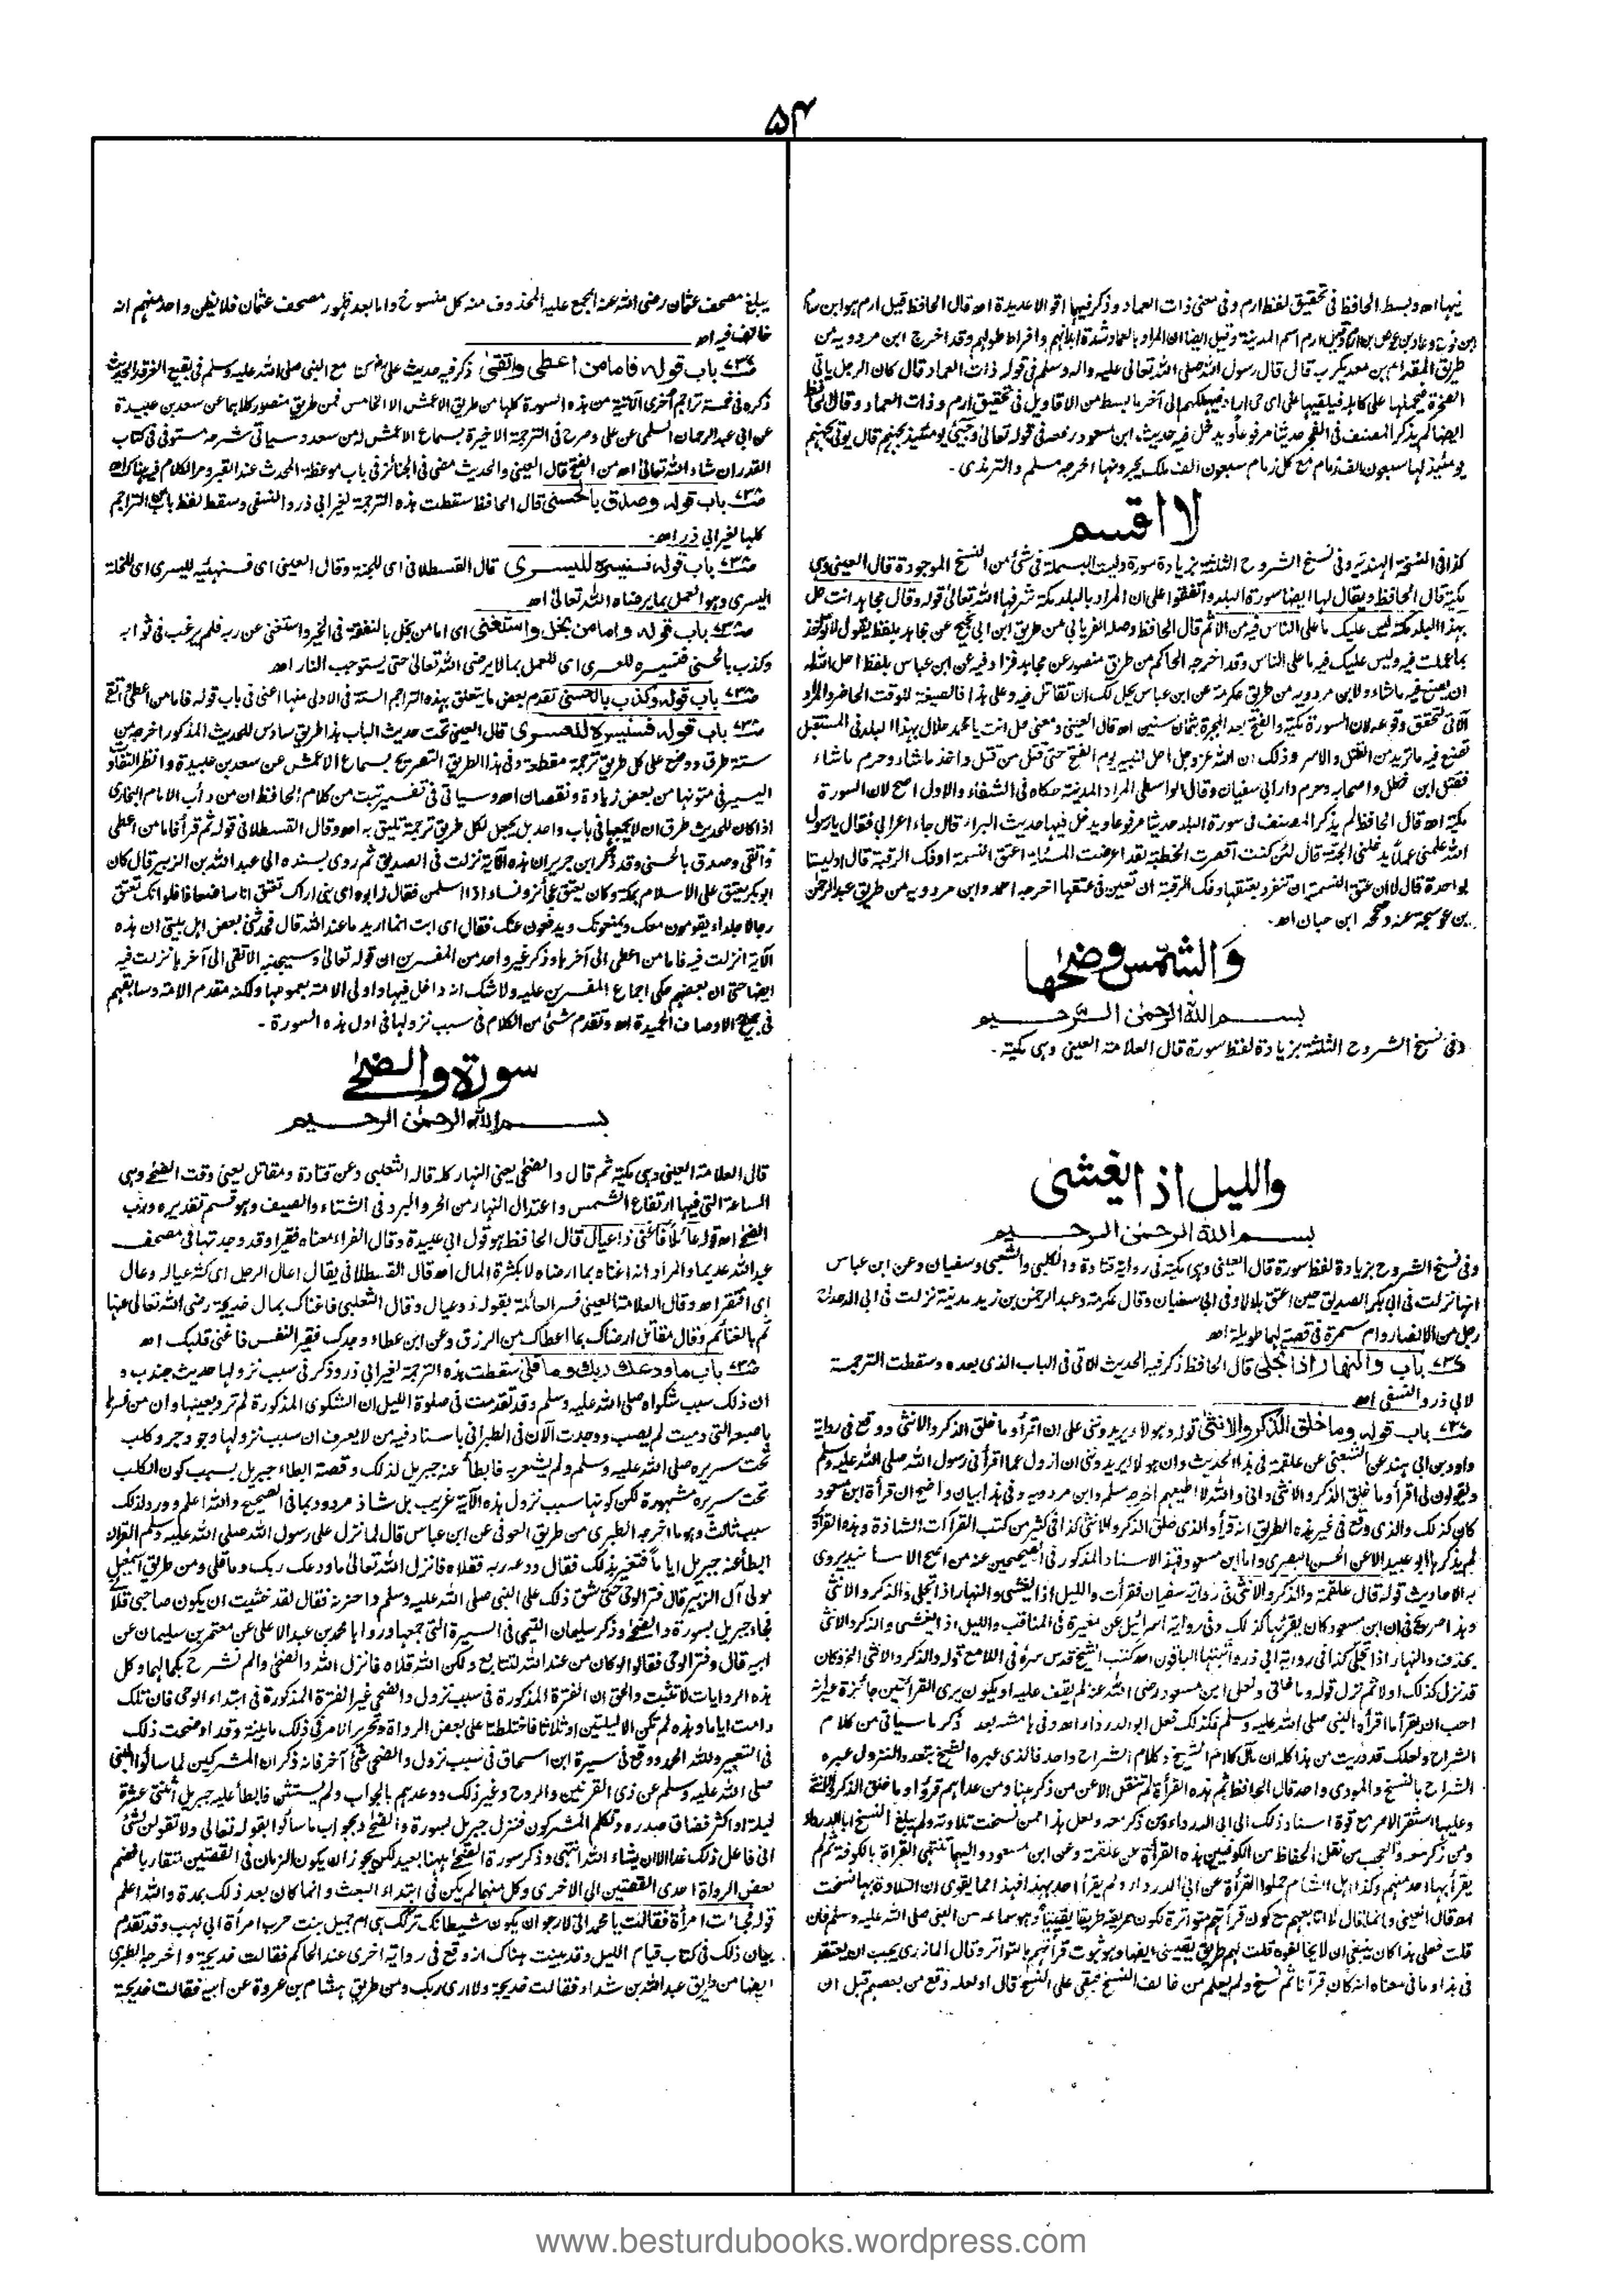 ۵۴
فيها اه وبسط الحافظ فى تحقيق لفظ ارم وفى معنى ذات العماد وذكر فيها اقوالا عديدة اه قال الحافظ قيل ارم هو ابن سام
ابن نوح وعاد بن عوص بن ارم وقيل ارم اسم المدينة وقيل ايضا ان المراد بالعماد شدة ابدانهم وافراط طولهم وقد اخرج ابن مردويه من
طريق المقدام بن معديكرب قال قال رسول الله صلى الله تعالى عليه واله وسلم فى قوله ذات العماد قال كان الرجل ياتى
الصخرة فيحملها على كاهله فيلقيها على اى حى اراد فيهلكهم الى آخر ما بسط من الاقاويل فى تحقيق ارم وذات العماد وقال الحافظ
ايضا لم يذكر المصنف فى الفجر حديثا مرفوعا ويدخل فيه حديث ابن مسعود رفعه فى قوله تعالى وجيئ يومئذ بجهنم قال يؤتى بجهنم
يومئذ لها سبعون الف زمام مع كل زمام سبعون الف ملك يجرونها اخرجه مسلم والترمذى -
لا اقسم
كذا فى النسخة الهندية وفى نسخ الشروح الثلثة بزيادة سورة وليت البسملة فى شئ من النسخ الموجودة قال العينى وهى
مكية قال الحافظ ويقال لها ايضا سورة البلد واتفقوا على ان المراد بالبلد مكة شرفها الله تعالى قوله وقال مجاهد انت حل
بهذا البلد مكة ليس عليك ما على الناس فيه من الاثم قال الحافظ وصله الفريابى من طريق ابن ابى نجيح عن مجاهد بلفظ يقول لا تؤاخذ
بما عملت فيه وليس عليك فيه ما على الناس وقد اخرجه الحاكم من طريق منصور عن مجاهد فزاد فيه عن ابن عباس بلفظ احل الله له
ان يصنع فيه ماشاء ولابن مردويه من طريق عكرمة عن ابن عباس يحل لك ان تقاتل فيه وعلى هذا فالصيغة للوقت الحاضر والمراد
الآتى لتحقق وقوعه لان السورة مكية والفتح بعد الهجرة بثمان سنين اه قال العينى ومعنى حل انت يا محمد حلال بهذا البلد فى المستقبل
تصنع فيه ما تريد من القتل والاسر وذلك ان الله عز وجل احل لنبيه يوم الفتح حتى قتل من قتل واخذ ماشاء وحرم ماشاء
فقتل ابن خطل واصحابه وحرم دار ابى سفيان وقال الواسطى المراد المدينة حكاه فى الشفاء والاول اصح لان السورة
مكية اه قال الحافظ لم يذكر المصنف فى سورة البلد حديثا مرفوعا ويدخل فيها حديث البراء قال جاء اعرابى فقال يا رسول
الله علمنى عملا يدخلنى الجنة قال لئن كنت اقصرت الخطبة لقد اعرضت المسئلة اعتق النسمة او فك الرقبة قال اوليستا
بواحدة قال لا ان عتق النسمة ان تنفرد بعتقها وفك الرقبة ان تعين فى عتقها اخرجه احمد وابن مردويه من طريق عبدالرحمن
بن عوسجة عنه وصححه ابن حبان اه -
والشمس وضحها
بسم الله الرحمن الرحيم
وفى نسخ الشروح الثلثة بزيادة لفظ سورة قال العلامة العينى وهى مكية -
والليل اذا يغشى
بسم الله الرحمن الرحيم
وفى نسخ الشروح بزيادة لفظ سورة قال العينى وهى مكية فى رواية قتادة والكلبى والشعبى وسفيان وعن ابن عباس
انها نزلت فى ابى بكر الصديق حين اعتق بلالا وفى ابى سفيان وقال عكرمة وعبدالرحمن بن زيد مدنية نزلت فى ابى الدحداح
رجل من الانصار وام سمرة فى قصة لهما طويلة اه
باب والنهار اذا تجلى قال الحافظ ذكر فيه الحديث الآتى فى الباب الذى بعده وسقطت الترجمة
لابى ذر والنسفى اه
باب قوله وما خلق الذكر والانثى قوله وهؤلاء يريدونى على ان اقرأ وما خلق الذكر والانثى ووقع فى رواية
داود بن ابى هند عن الشعبى عن علقمة فى هذا الحديث وان هؤلاء يريدوننى ان ازول عما اقرأنى رسول الله صلى الله عليه وسلم
ويقولون لى اقرأ وما خلق الذكر والانثى وانى والله لا اطيعهم اخرجه مسلم وابن مردويه وفى هذا بيان واضح ان قرأة ابن مسعود
كان كذلك والذى وقع فى غير هذه الطريق انه قرأ والذى خلق الذكر والانثى كذا فى كثير من كتب القرأات الشاذة وهذه القرأة
لم يذكرها ابو عبيد الا عن الحسن البصرى واما ابن مسعود فهذا الاسناد المذكور فى الصحيحين عنه من اصح الاسانيد يروى
به الاحاديث قوله قال علقمة والذكر والانثى فى رواية سفيان فقرأت والليل اذا يغشى والنهار اذا تجلى والذكر والانثى
وهذا صريح فى ان ابن مسعود كان يقرئها كذلك وفى رواية اسرائيل عن مغيرة فى المناقب والليل اذا يغشى والذكر والانثى
بحذف والنهار اذا تجلى كذا فى رواية ابى ذر واثبتها الباقون اه كتب الشيخ قدس سره فى اللامع قوله والذكر والانثى الخ وكان
قد نزل كذلك اولا ثم نزل قوله وما خلق ولعل ابن مسعود رضى الله عنه لم يقف عليه او يكون يرى القرأتين جائزة غير انه
احب ان يقرأ ما اقرأه النبى صلى الله عليه وسلم فكذلك فعل ابو الدرداء اه وفى هامشه بعد ذكر ما سياتى من كلام
الشراح ولعلك قد دريت من هذا كله ان مآل كلام الشيخ وكلام الشراح واحد فالذى عبره الشيخ بتعدد النزول عبره
الشراح بالنسخ والمؤدى واحد قال الحافظ ثم هذه القرأة لم تنقل الا عن من ذكر هنا ومن عداهم قرؤا وما خلق الذكر والانثى
وعليها استقر الامر مع قوة اسناد ذلك الى ابى الدرداء ومن ذكر معه ولعل هذا مما نسخت تلاوته ولم يبلغ النسخ ابا الدرداء
ومن ذكر معه والعجب من نقل الحفاظ من الكوفيين هذه القرأة عن علقمة وعن ابن مسعود واليهما تنتهى القرأة بالكوفة ثم لم
يقرأ بها احد منهم وكذا اهل الشام حملوا القرأة عن ابى الدرداء ولم يقرأ احد بهذا فهذا مما يقوى ان التلاوة بها نسخت
اه قال العينى وانما قال لا اتابعهم مع كون قرأتهم متواترة لكون طريقه طريقا يقينيا وهو سماعه من النبى صلى الله عليه وسلم فان
قلت فعلى هذا كان ينبغى ان لا يخالفوه قلت لهم طريق يقينى ايضا وهو ثبوت قرأتهم بالتواتر وقال المازرى يجب ان يعتقد
فى هذا وما فى معناه انه كان قرآنا ثم نسخ ولم يعلم من خالف النسخ فبقى على النسخ قال او لعله وقع من بعضهم قبل ان
يبلغ مصحف عثمان رضى الله عنه المجمع عليه المحذوف منه كل منسوخ واما بعد ظهور مصحف عثمان فلا يظن واحد منهم انه
خالف فيه اه
باب قوله فاما من اعطى واتقى ذكر فيه حديث على رض كنا مع النبى صلى الله عليه وسلم فى بقيع الغرقد الحديث
ذكره فى خمسة تراجم أخرى الآتية من هذه السورة كلها من طريق الاعمش الا الخامس فمن طريق منصور كلاهما عن سعد بن عبيدة
عن ابى عبدالرحمان السلمى عن على وصرح فى الترجمة الاخيرة بسماع الاعمش له من سعد وسياتى شرحه مستوفى فى كتاب
القدر ان شاء الله تعالى اه من الفتح قال العينى والحديث مضى فى الجنائز فى باب موعظة المحدث عند القبر ومر الكلام فيه هناك اه
باب قوله وصدق بالحسنى قال الحافظ سقطت هذه الترجمة لغير ابى ذر والنسفى وسقط لفظ باب من التراجم
كلها لغير ابى ذر اه -
باب قوله فسنيسره لليسرى قال القسطلانى اى للجنة وقال العينى اى فسنهيئه لليسرى اى للخلة
اليسرى وهو العمل بما يرضاه الله تعالى اه
باب قوله واما من بخل واستغنى اى اما من بخل بالنفقة فى الخير واستغنى عن ربه فلم يرغب فى ثوابه
وكذب بالحسنى فسنيسره للعسرى اى للعمل بما لا يرضى الله تعالى حتى يستوجب النار اه
باب قوله وكذب بالحسنى تقدم بعض ما يتعلق بهذه التراجم الستة فى الاولى منها اعنى فى باب قوله فاما من اعطى واتقى
باب قوله فسنيسره للعسرى قال العينى تحت حديث الباب هذا طريق سادس للحديث المذكور اخرجه من
ستة طرق ووضع على كل طريق ترجمة مقطعة وفى هذا الطريق التصريح بسماع الاعمش عن سعد بن عبيدة وانظر التفاوت
اليسير فى متونها من بعض زيادة ونقصان اه وسياتى فى تفسير تبت من كلام الحافظ ان من دأب الامام البخارى
اذا كان للحديث طرق ان لا يجمعها فى باب واحد بل يجعل لكل طريق ترجمة تليق به اه وقال القسطلانى قوله ثم قرأ فاما من اعطى
واتقى وصدق بالحسنى وقد ذكر ابن جرير ان هذه الآية نزلت فى الصديق ثم روى بسنده الى عبدالله بن الزبير قال كان
ابوبكر يعتق على الاسلام بمكة وكان يعتق عجائز ونساء اذا اسلمن فقال له ابوه اى بنى اراك تعتق اناسا ضعافا فلو انك تعتق
رجالا جلداء يقومون معك ويمنعونك ويدفعون عنك فقال اى ابت انما اريد ما عند الله قال فحدثنى بعض اهل بيتى ان هذه
الآية انزلت فيه فاما من اعطى الى آخرها وذكر غير واحد من المفسرين ان قوله تعالى وسيجنبها الاتقى الى آخرها نزلت فيه
ايضا حتى ان بعضهم حكى اجماع المفسرين عليه ولا شك انه داخل فيها واولى الامة بعمومها ولكنه مقدم الامة وسابقهم
فى جميع الاوصاف الحميدة اه وتقدم شئ من الكلام فى سبب نزولها فى اول هذه السورة -
سورة والضحى
بسم الله الرحمن الرحيم
قال العلامة العينى وهى مكية ثم قال والضحى يعنى النهار كله قاله الثعلبى وعن قتادة ومقاتل يعنى وقت الضحى وهى
الساعة التى فيها ارتفاع الشمس واعتدال النهار من الحر والبرد فى الشتاء والصيف وهو قسم تقديره ورب
الضحى اه قوله عائلا فاغنى ذا عيال قال الحافظ هو قول ابى عبيدة وقال الفراء معناه فقيرا وقد وجدتها فى مصحف
عبدالله عديما والمراد انه اغناه بما ارضاه لا بكثرة المال اه قال القسطلانى يقال اعال الرجل اى كثر عياله وعال
اى افتقر اه وقال العلامة العينى فسر العائلة بقوله ذو عيال وقال الثعلبى فاغناك بمال خديجة رضى الله تعالى عنها
ثم بالغنائم وقال مقاتل ارضاك بما اعطاك من الرزق وعن ابن عطاء وجدك فقير النفس فاغنى قلبك اه
باب ما ودعك ربك وما قلى سقطت هذه الترجمة لغير ابى ذر وذكر فى سبب نزولها حديث جندب و
ان ذلك سبب شكواه صلى الله عليه وسلم وقد تقدمت فى صلوة الليل ان الشكوى المذكورة لم ترد بعينها وان من فسرها
باصبعه التى دميت لم يصب ووجدت الآن فى الطبرانى باسناد فيه من لا يعرف ان سبب نزولها وجود جرو كلب
تحت سريره صلى الله عليه وسلم ولم يشعر به فابطأ عنه جبريل لذلك وقصة ابطاء جبريل بسبب كون الكلب
تحت سريره مشهورة لكن كونها سبب نزول هذه الآية غريب بل شاذ مردود بما فى الصحيح والله اعلم وورد لذلك
سبب ثالث وهو ما اخرجه الطبرى من طريق العوفى عن ابن عباس قال لما نزل على رسول الله صلى الله عليه وسلم القرآن
ابطأ عنه جبريل اياما فتغير بذلك فقال ودعه ربه فقلاه فانزل الله تعالى ما ودعك ربك وما قلى ومن طريق اسمعيل
مولى آل الزبير قال فتر الوحى حتى شق ذلك على النبى صلى الله عليه وسلم واحزنه فقال لقد خشيت ان يكون صاحبى قلانى
فجاء جبريل بسورة والضحى وذكر سليمان التيمى فى السيرة التى جمعها ورواها محمد بن عبدالاعلى عن معتمر بن سليمان عن
ابيه قال وفتر الوحى فقالوا لو كان من عند الله لتتابع ولكن الله قلاه فانزل الله والضحى والم نشرح بكمالهما وكل
هذه الروايات لا تثبت والحق ان الفترة المذكورة فى سبب نزول والضحى غير الفترة المذكورة فى ابتداء الوحى فان تلك
دامت اياما وهذه لم تكن الا ليلتين او ثلاثا فاختلطتا على بعض الرواة وتحرير الامر فى ذلك ما بينته وقد اوضحت ذلك
فى التعبير ولله الحمد ووقع فى سيرة ابن اسحاق فى سبب نزول والضحى شئ آخر فانه ذكر ان المشركين لما سألوا النبى
صلى الله عليه وسلم عن ذى القرنين والروح وغير ذلك ووعدهم بالجواب ولم يستثن فابطأ عليه جبريل اثنتى عشرة
ليلة او اكثر فضاق صدره وتكلم المشركون فنزل جبريل بسورة والضحى وبجواب ما سألوا بقوله تعالى ولا تقولن لشئ
انى فاعل ذلك غدا الا ان يشاء الله انتهى وذكر سورة الضحى ههنا بعيد لكن يجوز ان يكون الزمان فى القصتين متقاربا فضم
بعض الرواة احدى القصتين الى الاخرى وكل منهما لم يكن فى ابتداء البعث وانما كان بعد ذلك بمدة والله اعلم
قوله فجاءت امرأة فقالت يا محمد انى لارجو ان يكون شيطانك تركك هى ام جميل بنت حرب امرأة ابى لهب وقد تقدم
بيان ذلك فى كتاب قيام الليل وقد بينت هناك انه وقع فى رواية اخرى عند الحاكم فقالت خديجة واخرجه الطبرى
ايضا من طريق عبدالله بن شداد فقالت خديجة ولا ارى ربك ومن طريق هشام بن عروة عن ابيه فقالت خديجة
www.besturdubooks.wordpress.com